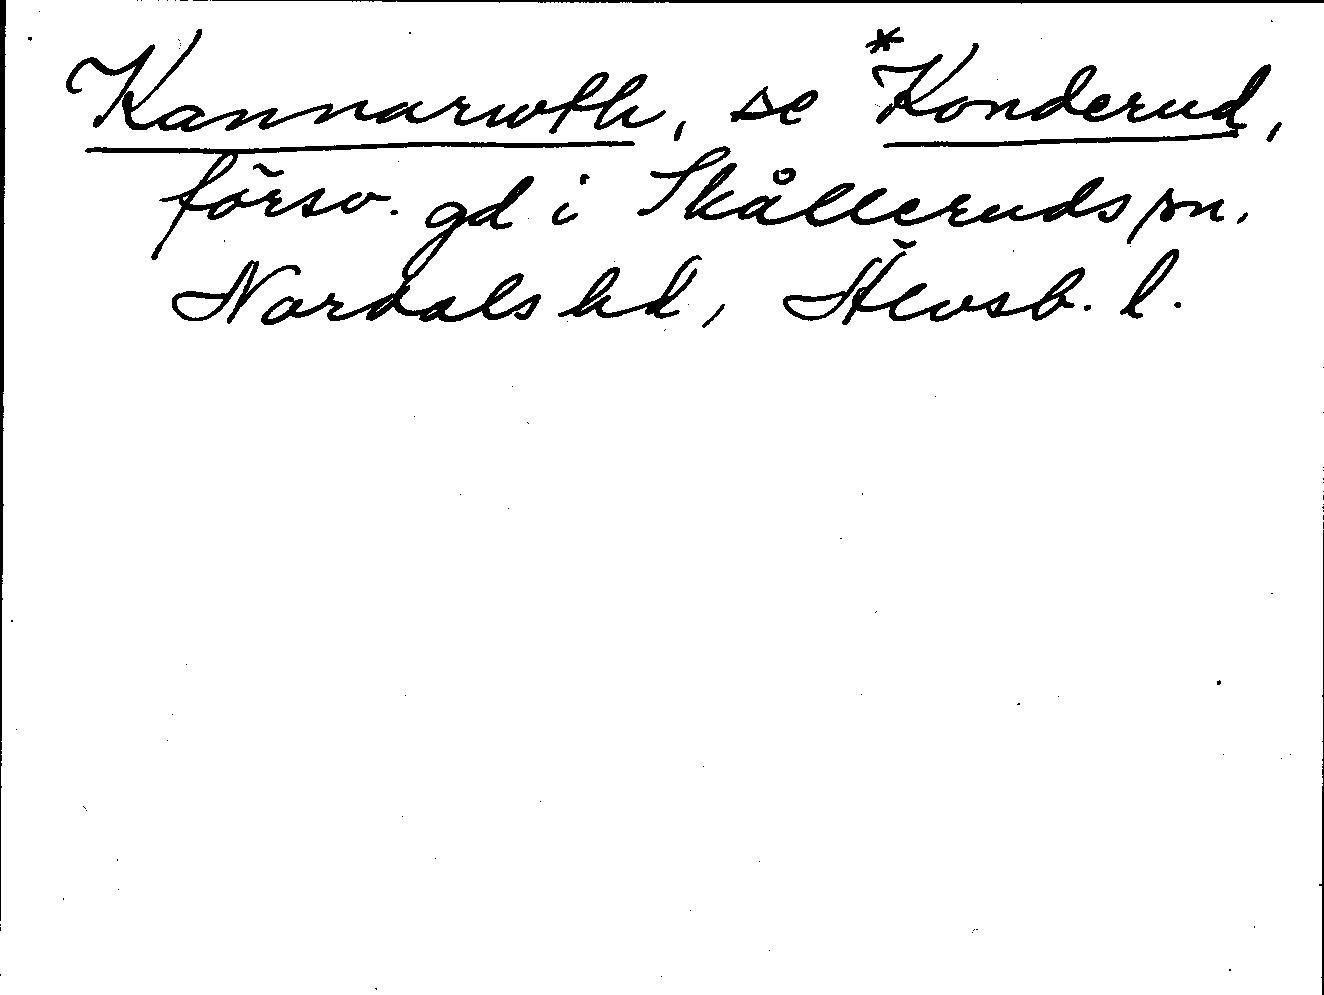 Kannarwth, se *Konderud,
försv. gd i Skålleruds sn.
Nordals hd, Älvsb. l.